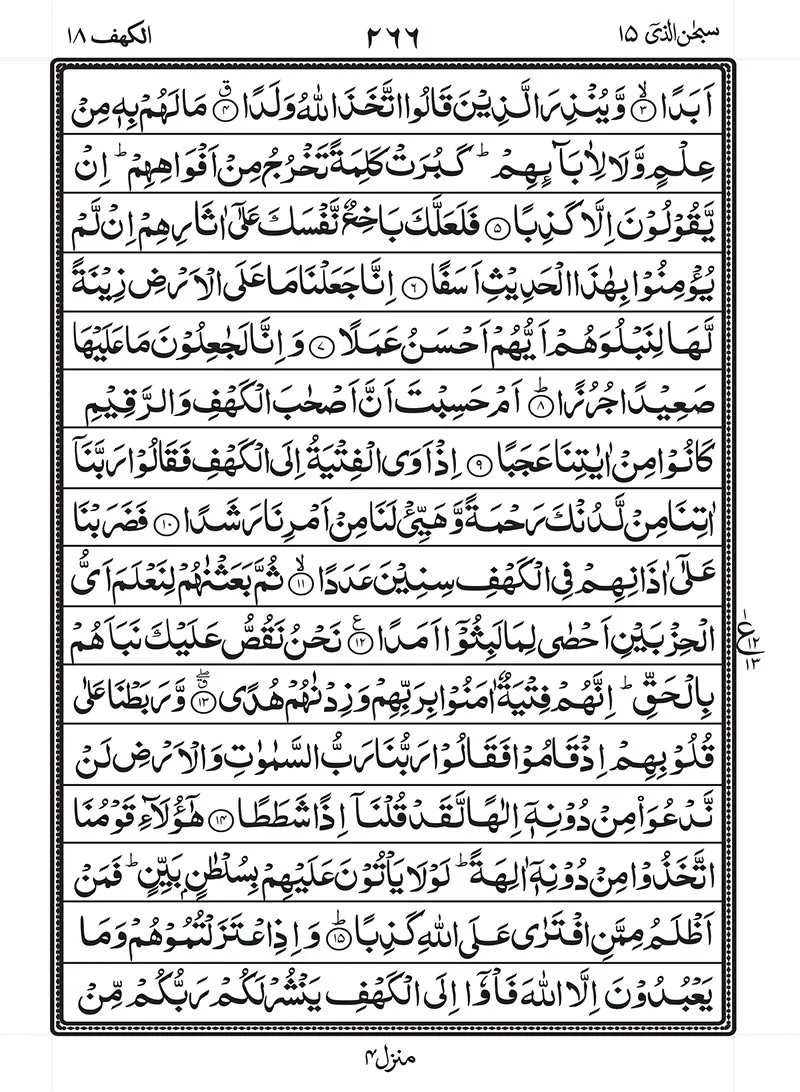 سبحٰن الذیٓ ۱۵
۲۶۶
الکهف ۱۸
اَبَدًا ۙ﴿۳﴾ وَّیُنْذِرَ الَّذِیْنَ قَالُوا اتَّخَذَ اللّٰهُ وَلَدًا ۗ﴿۴﴾ مَا لَهُمْ بِهٖ مِنْ
عِلْمٍ وَّلَا لِاٰبَآىِٕهِمْ ؕ كَبُرَتْ كَلِمَةً تَخْرُجُ مِنْ اَفْوَاهِهِمْ ؕ اِنْ
یَّقُوْلُوْنَ اِلَّا كَذِبًا ﴿۵﴾ فَلَعَلَّكَ بَاخِعٌ نَّفْسَكَ عَلٰۤی اٰثَارِهِمْ اِنْ لَّمْ
یُؤْمِنُوْا بِهٰذَا الْحَدِیْثِ اَسَفًا ﴿۶﴾ اِنَّا جَعَلْنَا مَا عَلَی الْاَرْضِ زِیْنَةً
لَّهَا لِنَبْلُوَهُمْ اَیُّهُمْ اَحْسَنُ عَمَلًا ﴿۷﴾ وَ اِنَّا لَجٰعِلُوْنَ مَا عَلَیْهَا
صَعِیْدًا جُرُزًا ؕ﴿۸﴾ اَمْ حَسِبْتَ اَنَّ اَصْحٰبَ الْكَهْفِ وَ الرَّقِیْمِ
كَانُوْا مِنْ اٰیٰتِنَا عَجَبًا ﴿۹﴾ اِذْ اَوَی الْفِتْیَةُ اِلَی الْكَهْفِ فَقَالُوْا رَبَّنَاۤ
اٰتِنَا مِنْ لَّدُنْكَ رَحْمَةً وَّ هَیِّئْ لَنَا مِنْ اَمْرِنَا رَشَدًا ﴿۱۰﴾ فَضَرَبْنَا
عَلٰۤی اٰذَانِهِمْ فِی الْكَهْفِ سِنِیْنَ عَدَدًا ۙ﴿۱۱﴾ ثُمَّ بَعَثْنٰهُمْ لِنَعْلَمَ اَیُّ
الْحِزْبَیْنِ اَحْصٰی لِمَا لَبِثُوْۤا اَمَدًا ﴿۱۲﴾ نَحْنُ نَقُصُّ عَلَیْكَ نَبَاَهُمْ
ع
۱۲
۱۳
بِالْحَقِّ ؕ اِنَّهُمْ فِتْیَةٌ اٰمَنُوْا بِرَبِّهِمْ وَ زِدْنٰهُمْ هُدًی ﴿۱۳﴾ وَّ رَبَطْنَا عَلٰی
قُلُوْبِهِمْ اِذْ قَامُوْا فَقَالُوْا رَبُّنَا رَبُّ السَّمٰوٰتِ وَ الْاَرْضِ لَنْ
نَّدْعُوَا۠ مِنْ دُوْنِهٖۤ اِلٰهًا لَّقَدْ قُلْنَاۤ اِذًا شَطَطًا ﴿۱۴﴾ هٰۤؤُلَآءِ قَوْمُنَا
اتَّخَذُوْا مِنْ دُوْنِهٖۤ اٰلِهَةً ؕ لَوْ لَا یَاْتُوْنَ عَلَیْهِمْ بِسُلْطٰنٍۭ بَیِّنٍ ؕ فَمَنْ
اَظْلَمُ مِمَّنِ افْتَرٰی عَلَی اللّٰهِ كَذِبًا ؕ﴿۱۵﴾ وَ اِذِ اعْتَزَلْتُمُوْهُمْ وَ مَا
یَعْبُدُوْنَ اِلَّا اللّٰهَ فَاْوٗۤا اِلَی الْكَهْفِ یَنْشُرْ لَكُمْ رَبُّكُمْ مِّنْ
منزل۴